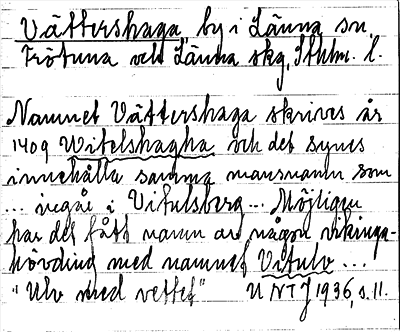 Vättershaga, by i Länna sn.
Frötuna och Länna skg, Sthlm. l.
Namnet Vättershaga skrives år
1409 Witelshagha och det synes
innehålla samma mansnamn som
... ingår i Vitulsberg... Möjligen
har det fått namn av någon vikinga-
hövding med namnet Vitulv ...
"Ulv med vettet" UNT J 1936, s. 11.